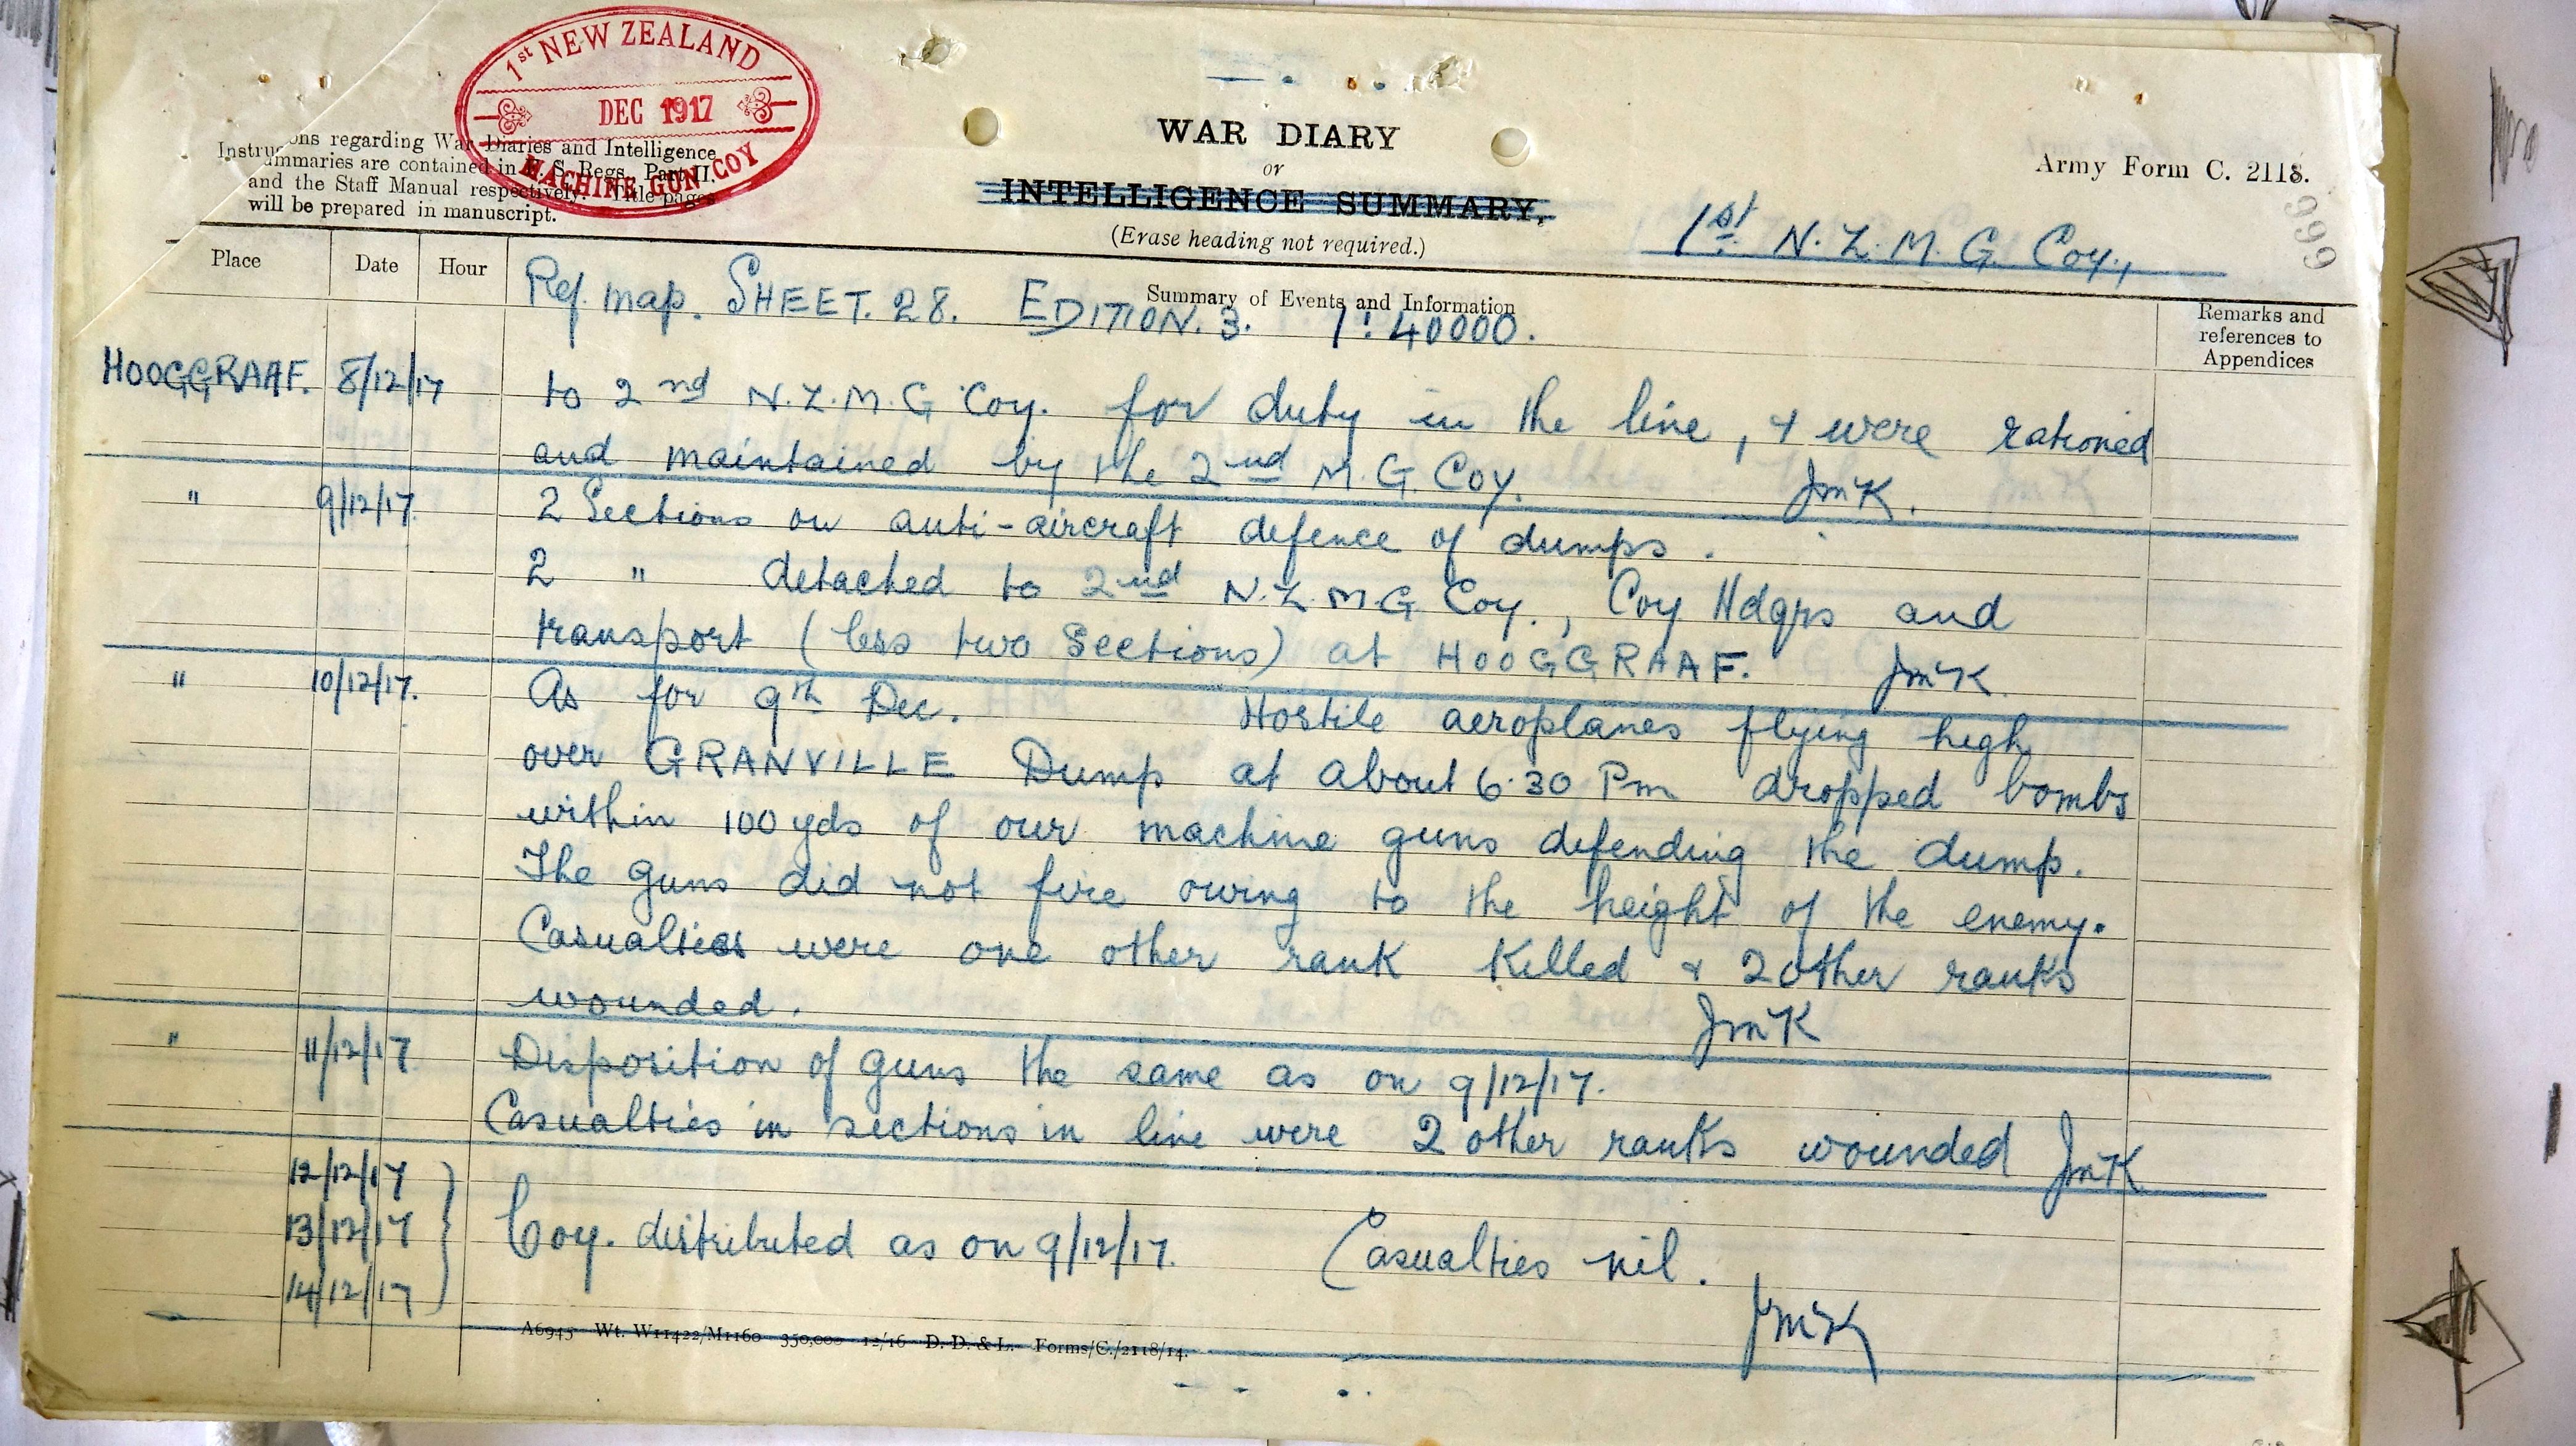 1st NEW ZEALAND
DEC 1917
MACHINE GUN COY
Instructions regarding War Diaries and Intelligence
Summaries are contained in F. S. Regs., Part II.
and the Staff Manual respectively. Title pages
will be prepared in manuscript.
WAR DIARY
or
INTELLIGENCE SUMMARY,
(Erase heading not required.)
Army Form C. 2118.
666
1st N. Z. M. G. Coy.,
Place
Date
Hour
Summary of Events and Information
Remarks and
references to
Appendices
Ref. map. SHEET. 28. EDITION. 3. 1:40000.
HOOGGRAAF. 8/12/17 to 2nd N.Z.M.G Coy. for duty in the line, & were rationed
and maintained by the 2nd M.G. Coy. JMcK.
" 9/12/17. 2 Sections on anti-aircraft defence of dumps.
2 " detached to 2nd N.Z.M.G. Coy., Coy Hdqrs and
transport (less two Sections) at HOOGGRAAF. JMcK.
" 10/12/17. As for 9th Dec. Hostile aeroplanes flying high
over GRANVILLE Dump at about 6.30 Pm dropped bombs
within 100 yds of our machine guns defending the dump.
The guns did not fire owing to the height of the enemy.
Casualties were one other rank killed & 2 other ranks
wounded. JMcK
" 11/12/17 Disposition of guns the same as on 9/12/17.
Casualties in sections in line were 2 other ranks wounded JMcK
12/12/17
13/12/17 Coy. distributed as on 9/12/17. Casualties nil.
14/12/17
JMcK
A6945 Wt. W11422/M1160 350,000 12/16 D. D. & L. Forms/C./2118/14.